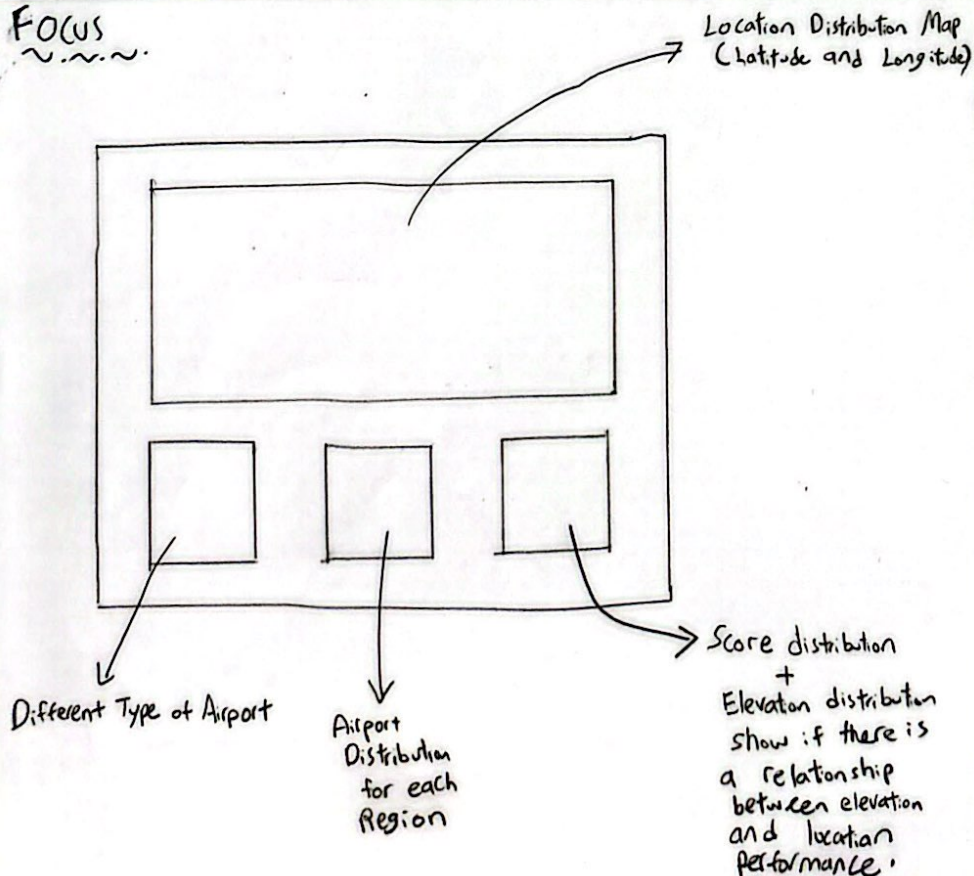 Focus
Location Distribution Map
(Latitude and Longitude)
Different Type of Airport
Airport
Distribution
for each
Region
Score distribution
+
Elevation distribution
show if there is
a relationship
between elevation
and location
performance.